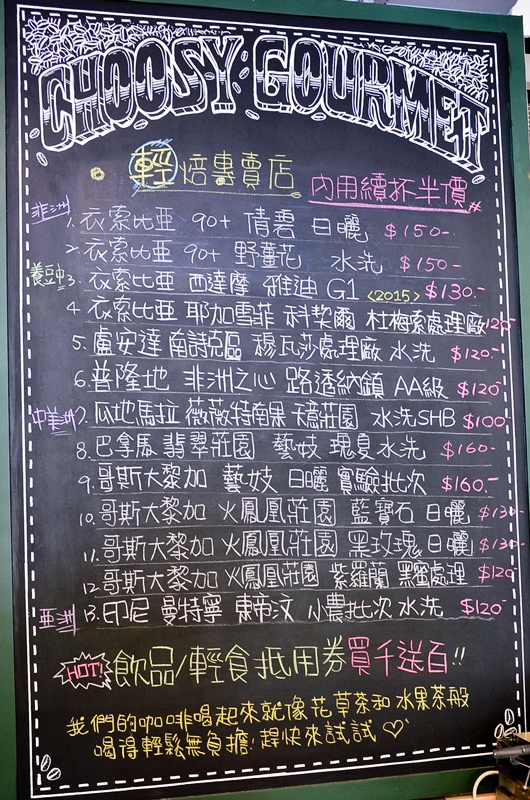 CHOOSY GOURMET
輕焙專賣店 內用續杯半價#
非洲 1. 衣索比亞 90+ 倩雲 日曬 $150-
2. 衣索比亞 90+ 野薑花 水洗 $150-
養豆中 3. 衣索比亞 西達摩 雅迪 G1 <2015> $130-
4. 衣索比亞 耶加雪菲 科契爾 杜梅索處理廠 120-
5. 盧安達 南詩克區 穆瓦莎處理廠 水洗 $120-
6. 普隆地 非洲之心 路透納鎮 AA級 $120
中美洲 7. 瓜地馬拉 薇薇特南果 天意莊園 水洗SHB $100
8. 巴拿馬 翡翠莊園 藝妓 瑰夏水洗 $160-
9. 哥斯大黎加 藝妓 日曬 實驗批次 $160.-
10. 哥斯大黎加 火鳳凰莊園 藍寶石 日曬 $130-
11. 哥斯大黎加 火鳳凰莊園 黑玫瑰 日曬 $130-
12. 哥斯大黎加 火鳳凰莊園 紫羅蘭 黑蜜處理 $120
亞洲 13. 印尼 曼特寧 東帝汶 小農批次 水洗 $120-
HOT! 飲品/輕食抵用券買千送百!!
我們的咖啡喝起來就像花草茶和水果茶般
喝得輕鬆無負擔. 趕快來試試♡